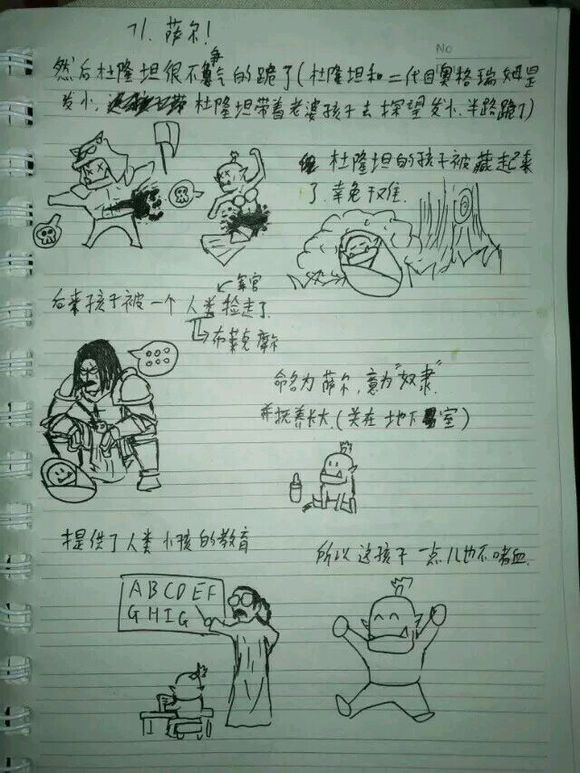 71. 萨尔!
No
然后杜隆坦很不争气的跪了(杜隆坦和二代目奥格瑞姆是
发小, 杜隆坦带着老婆孩子去探望发小, 半路跪了)
杜隆坦的孩子被藏起来
了. 幸免于难.
后来孩子被一个人类捡走了.
军官
布莱克摩尔
命名为萨尔, 意为"奴隶".
并抚养长大. (关在地下室)
提供了人类小孩的教育
所以这孩子一点儿也不嗜血.
A B C D E F
G H I G